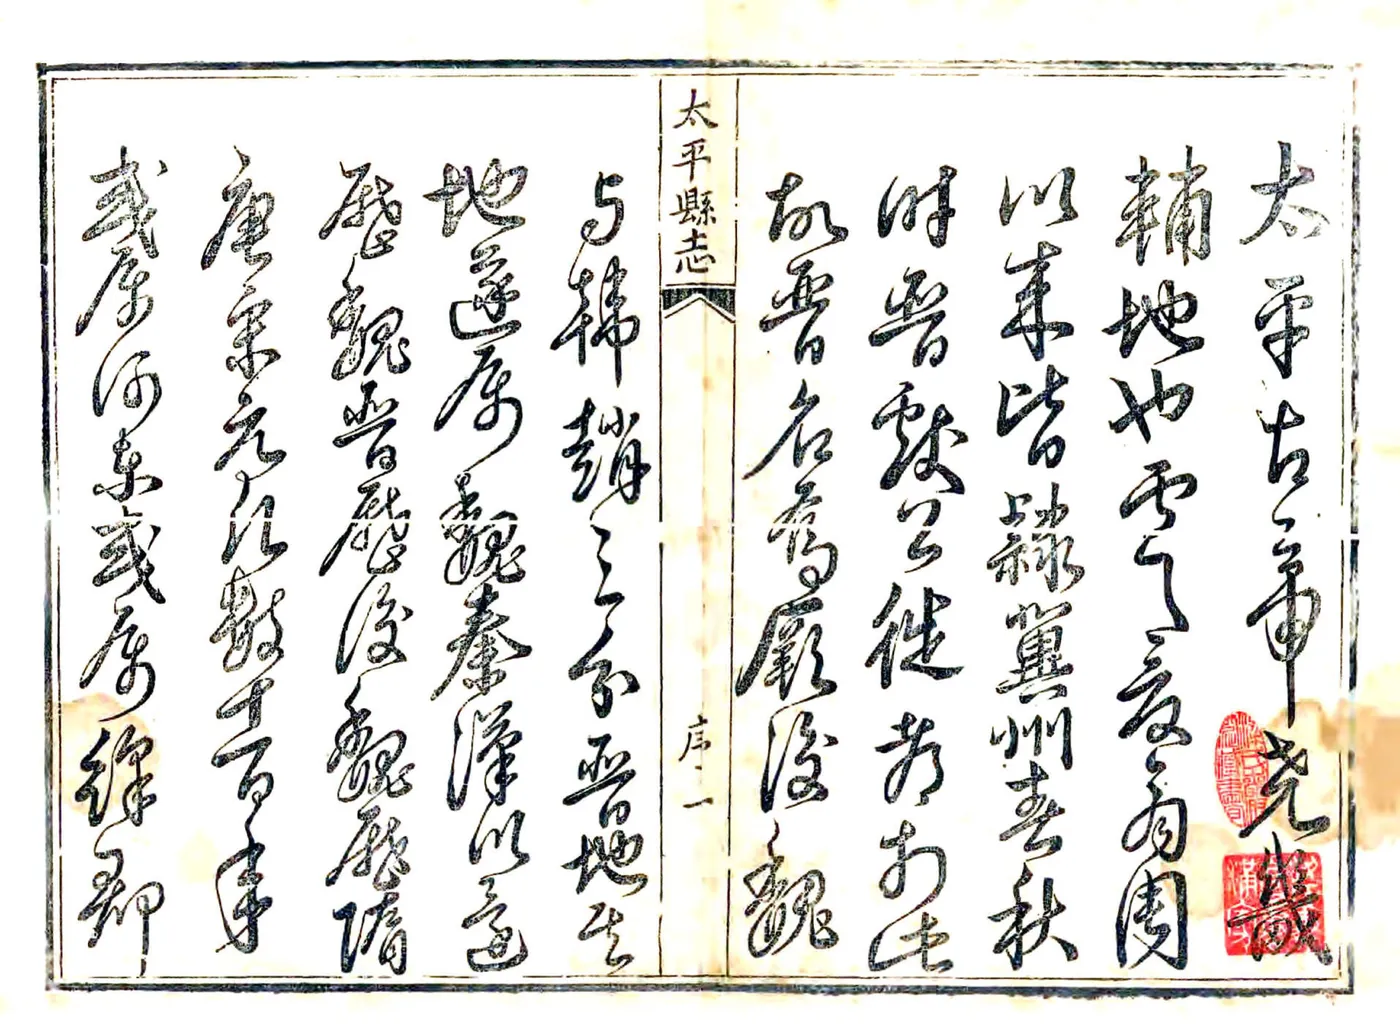 太平古帝堯畿
輔地也虞夏商周
以來皆隸冀州春秋
時晉獻公徙都於此
故晉名為厥後魏
太平縣志
序 一
与韓趙三分晉地其
地遂属魏秦漢以還
歷魏晉歷後魏歷隋
唐宋元凡數十百年
或属河東或属絳郡